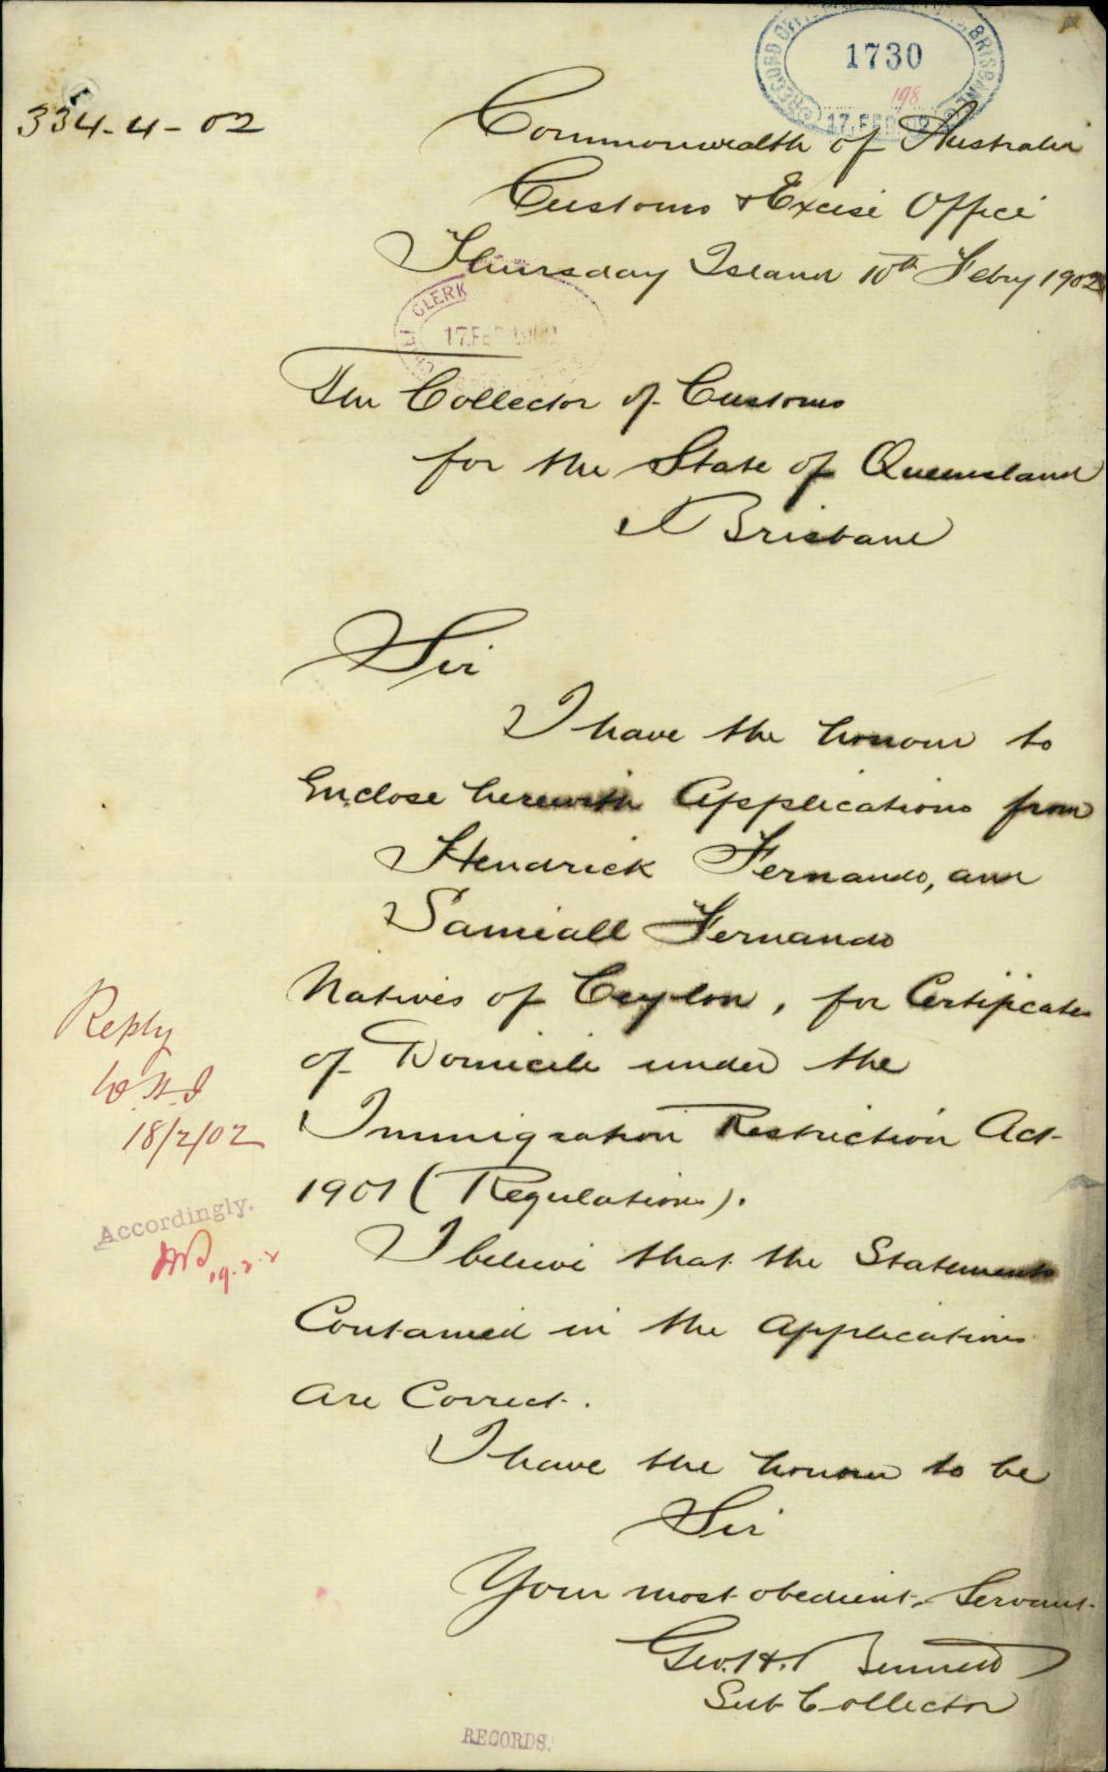 1730
198
17. FEB
334-4-02
Commonwealth of Australia
Customs & Excise Office
Thursday Island 10th Febry 1902
CLERK
17. FEB
The Collector of Customs
for the State of Queensland
Brisbane
Sir
I have the honour to
Enclose herewith Applications from
Hendrick Fernando, and
Samiall Fernando
Natives of Ceylon, for Certificates
of Domicile under the
Immigration Restriction Act
1901 (Regulations).
I believe that the Statements
Contained in the applications
are Correct.
I have the honour to be
Sir
Your most obedient Servant
Geo. H. Bennett
Sub Collector
Reply
18/2/02
Accordingly.
19.2.2
RECORDS.